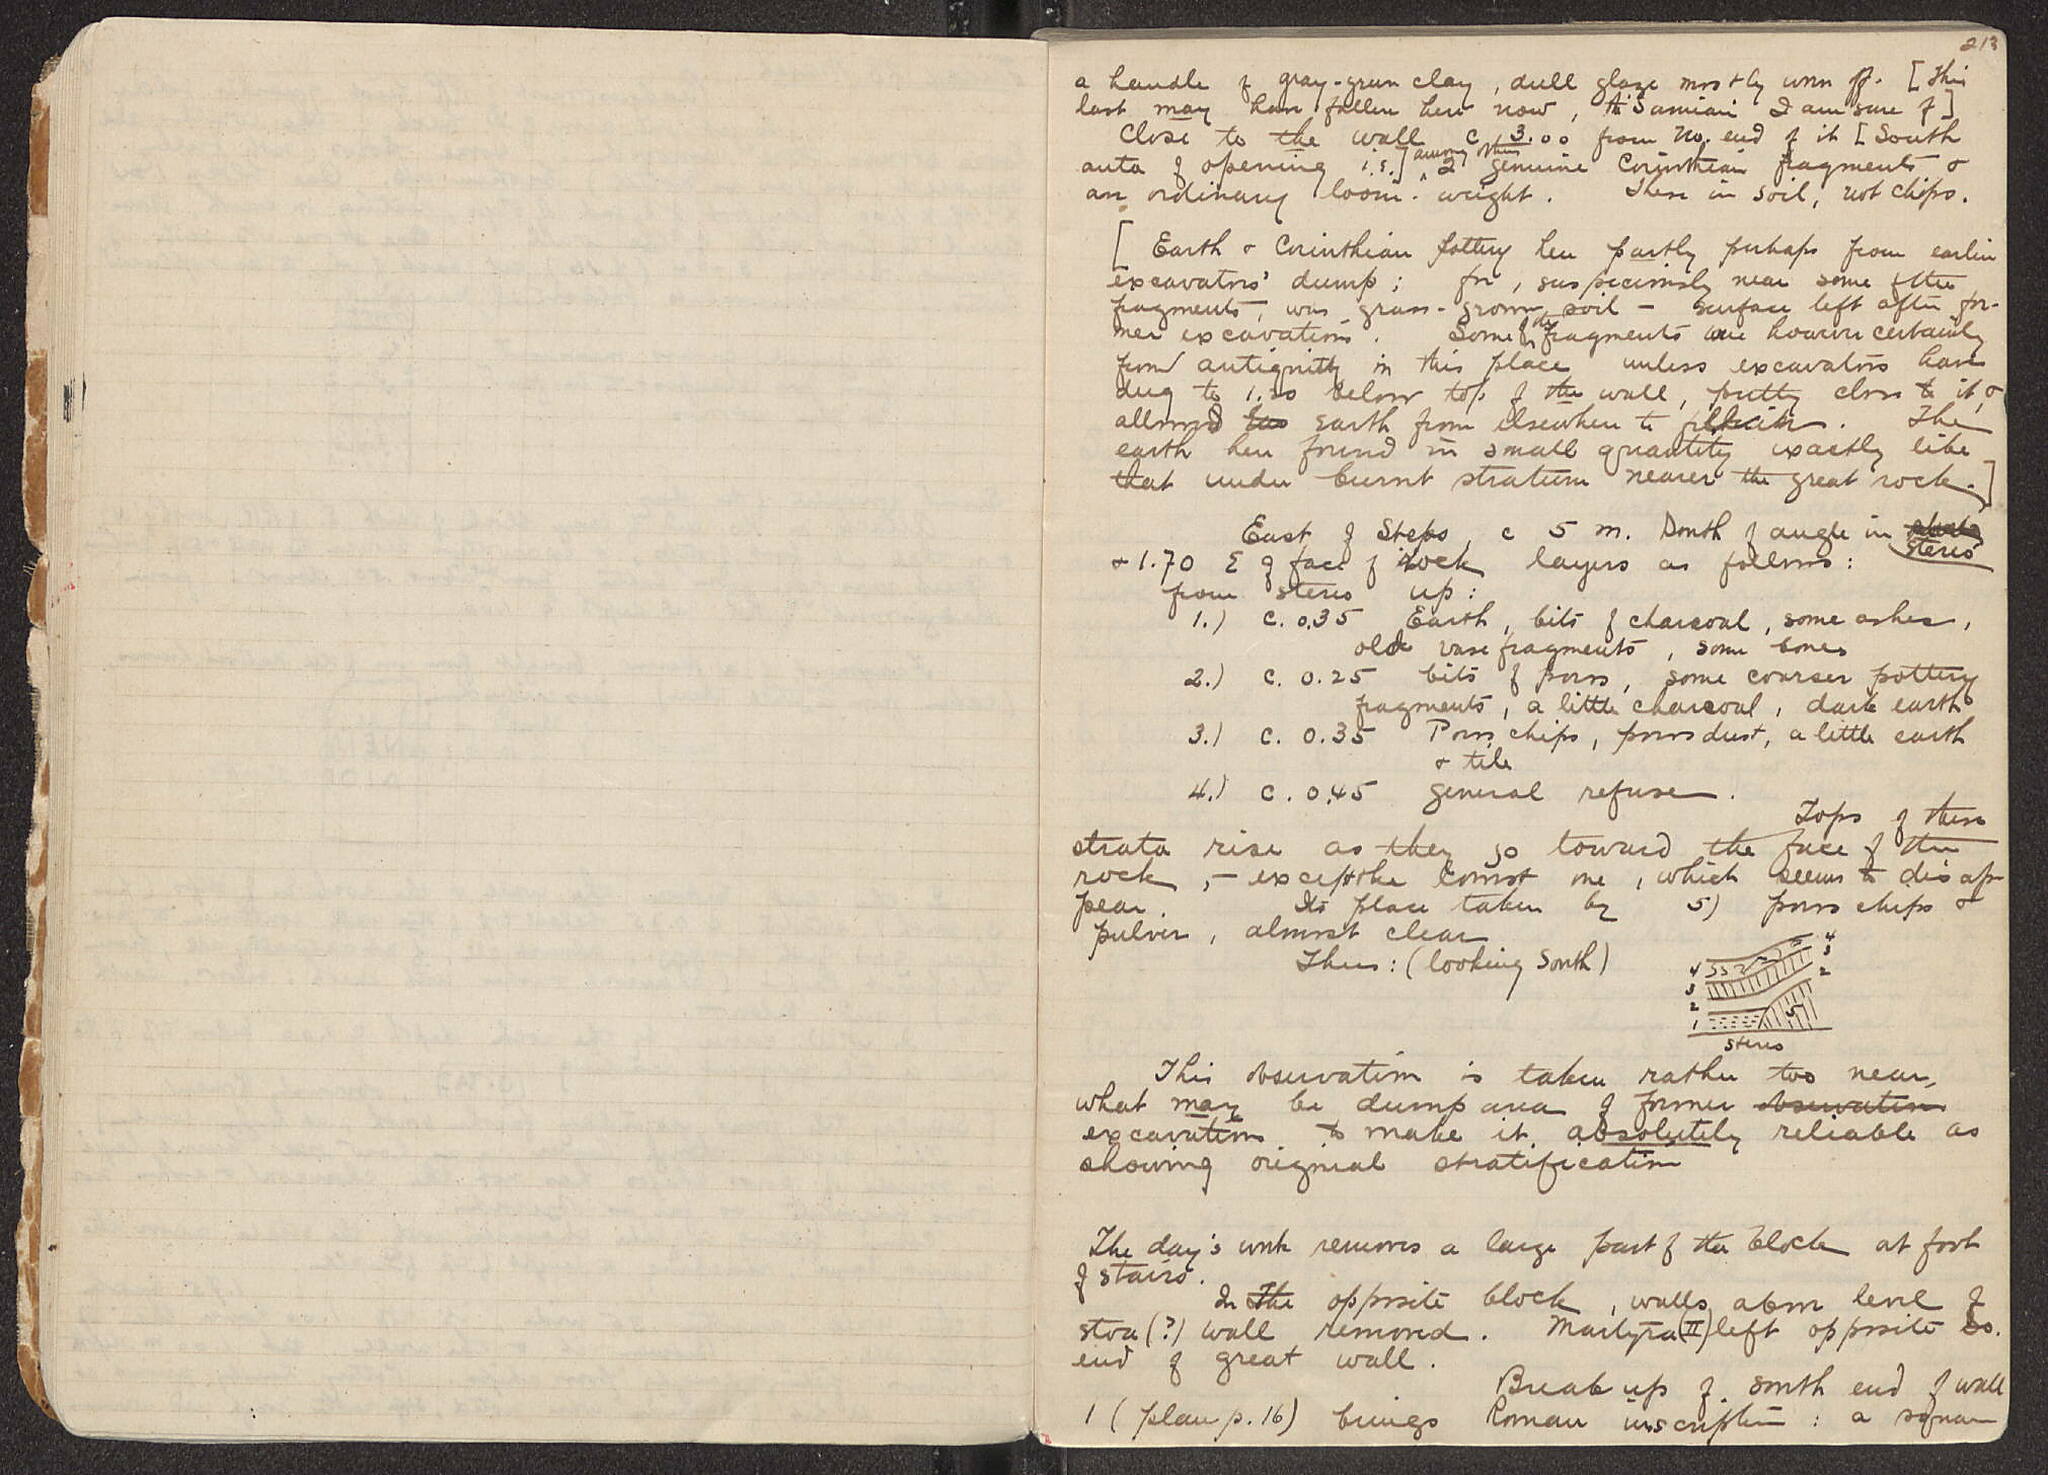 213
a handle of gray-green clay, dull glaze mostly worn off. [This
last may have fallen here now, the Samian I am sure of]
Close to the wall c 3.00 from No. end of it [South
anta of opening i.s.] among others 2 genuine Corinthian fragments &
an ordinary loom-weight. These in soil, not chips.
[Earth & Corinthian pottery here partly perhaps from earlier
excavators' dump; for, suspiciously near some of the
fragments, was grass-grown soil - surface left after for-
mer excavations. Some of the fragments are however certainly
from antiquity in this place unless excavators have
dug to 1.20 below top of the wall, pretty close to it, &
allowed earth from elsewhere to fill in. The
earth here found in small quantity exactly like
that under burnt stratum nearer the great rock.]
East of Steps, c 5 m. South of angle in stereo
& 1.70 E of face of rock layers as follows:
from stereo up:
1.) c. 0.35 Earth, bits of charcoal, some ashes,
old vase fragments, some bones
2.) c. 0.25 bits of poros, some coarser pottery
fragments, a little charcoal, dark earth
3.) c. 0.35 Poros chips, poros dust, a little earth
& tile
4.) c. 0.45 general refuse.
Tops of these
strata rise as they go toward the face of the
rock, - except the lowest one, which seems to disap-
pear. Its place taken by 5) poros chips &
pulver, almost clear
Thus: (looking South)
4 3 2 1
4 3 2
5
Stereo
This observation is taken rather too near,
what may be dump area of former observation
excavations to make it absolutely reliable as
showing original stratification
The day's work removes a large part of the block at foot
of stairs.
In the opposite block, walls above level of
stoa (?) wall removed. Martyra (II) left opposite So.
end of great wall.
Break up of south end of wall
1 (plan p. 16) brings Roman inscription: a square